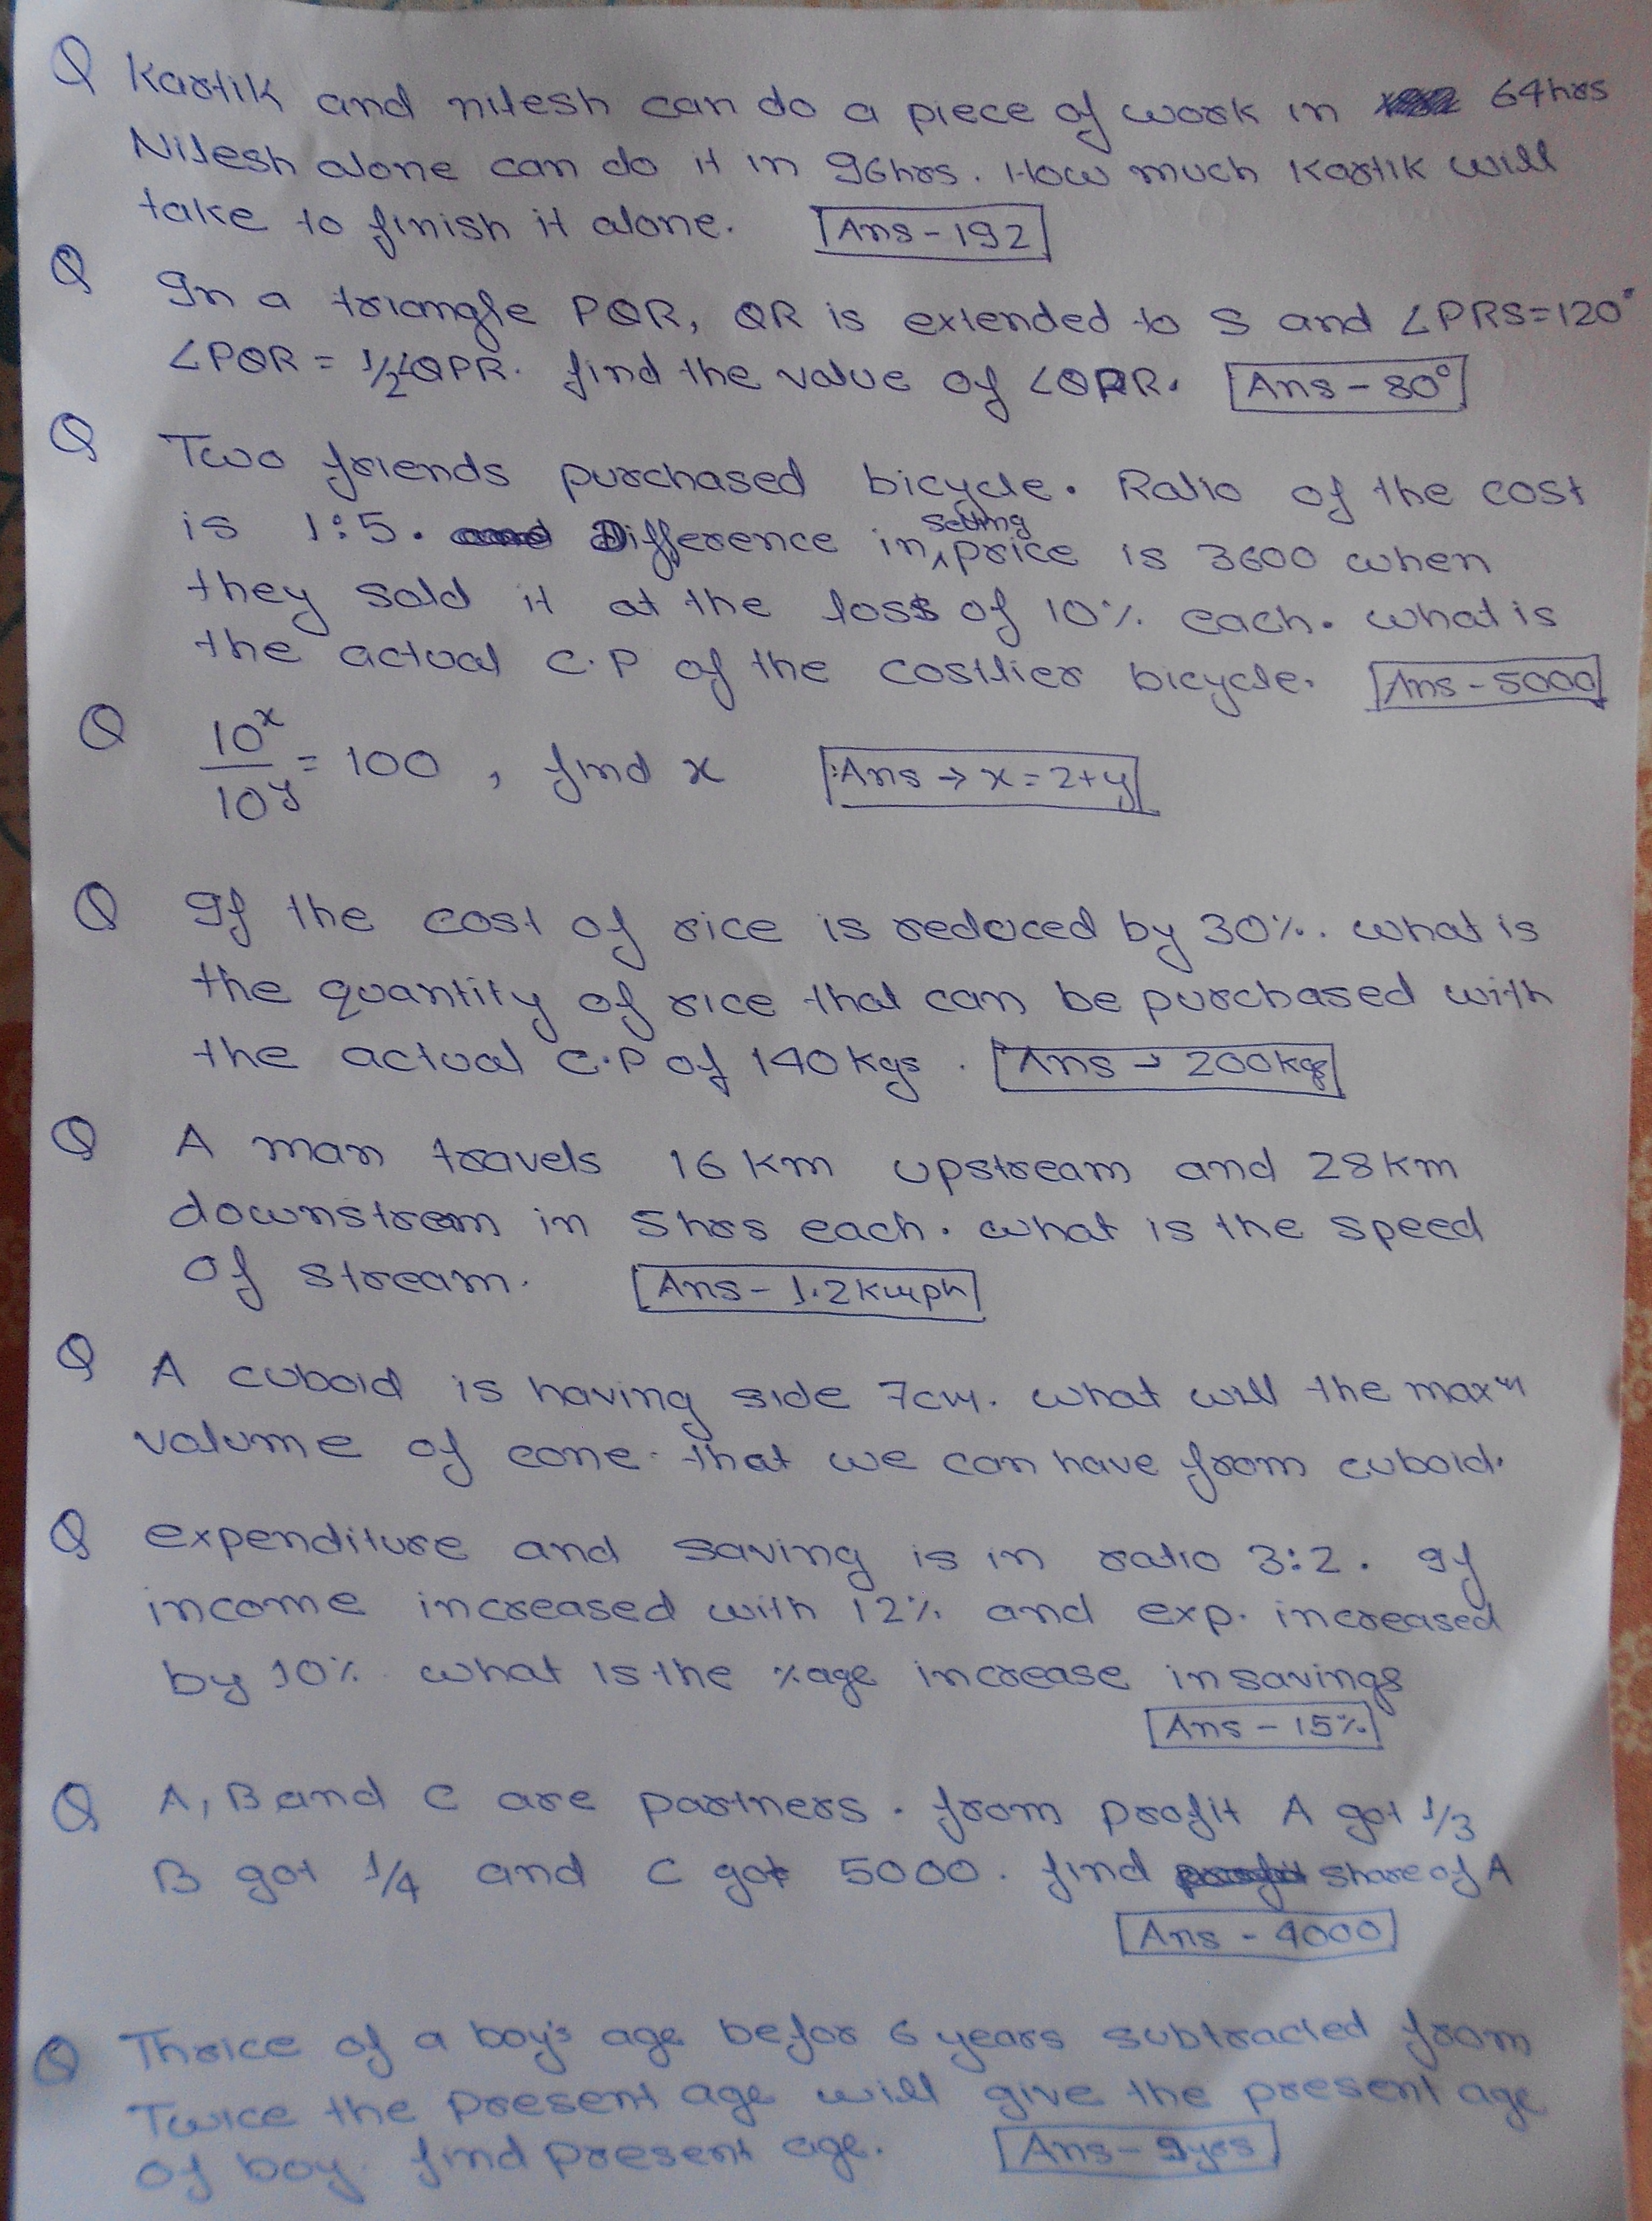 Q Kartik and nilesh can do a piece of work in 64hrs
Nilesh alone can do it in 96hrs. How much Kartik will
take to finish it alone. Ans - 192
Q In a triangle PQR, QR is extended to S and ∠PRS=120°
∠PQR = 1/2∠QPR. find the value of ∠QPR. Ans - 80°
Q Two friends purchased bicycle. Ratio of the cost
is 1:5. Difference in selling price is 3600 when
they sold it at the loss of 10% each. what is
the actual C.P of the costlier bicycle. Ans - 5000
Q 10^x/10^y = 100, find x Ans → x = 2+y
Q If the cost of rice is reduced by 30%. what is
the quantity of rice that can be purchased with
the actual C.P of 140 kgs. Ans → 200kgs
Q A man travels 16 km upstream and 28 km
downstream in 5hrs each. what is the speed
of stream. Ans - 1.2kmph
Q A cuboid is having side 7cm. what will the maxm
volume of cone that we can have from cuboid.
Q expenditure and saving is in ratio 3:2. If
income increased with 12% and exp. increased
by 10% what is the %age increase in savings
Ans - 15%
Q A, B and C are partners. from profit A got 1/3
B got 1/4 and C got 5000. find share of A
Ans - 4000
Q Thrice of a boy's age befor 6 years subtracted from
Twice the present age will give the present age
of boy. find present age. Ans - 9yrs